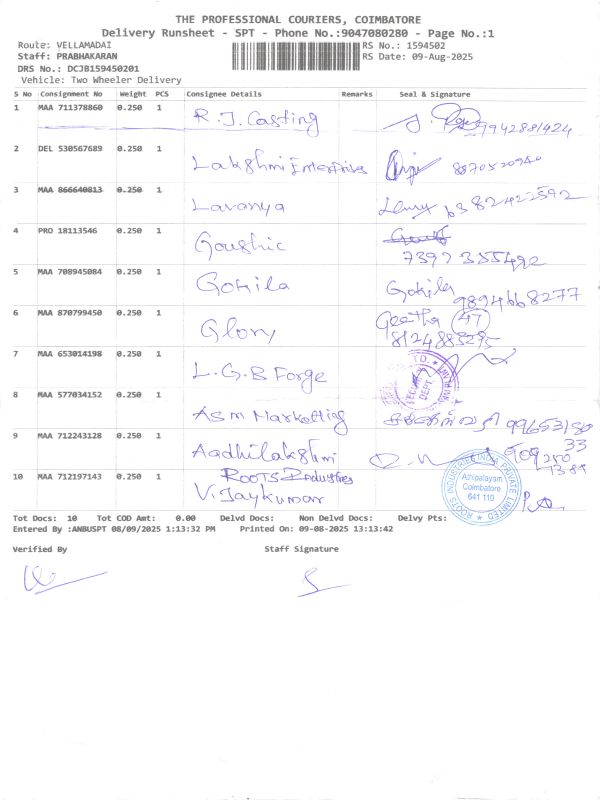 THE PROFESSIONAL COURIERS, COIMBATORE
Delivery Runsheet - SPT - Phone No.:9047080280 - Page No.:1
Route: VELLAMADAI
RS No.: 1594502
Staff: PRABHAKARAN
RS Date: 09-Aug-2025
DRS No.: DCJB159450201
Vehicle: Two Wheeler Delivery
S No Consignment No Weight PCS Consignee Details Remarks Seal & Signature
1 MAA 711378860 0.250 1 R.J. Casting 9942881424
2 DEL 530567689 0.250 1 Lakshmi Enterprises 8870520940
3 MAA 866640813 0.250 1 Lavanya 6382422592
4 PRO 18113546 0.250 1 Goushic
7397355492
5 MAA 708945084 0.250 1 Gokila Gokila 9894668277
6 MAA 870799450 0.250 1 Glory Geetha 47
8124885295
7 MAA 653014198 0.250 1 L.G.B Forge
DEPT.
8 MAA 577034152 0.250 1 ASM Marketting
9 MAA 712243128 0.250 1 Aadhilakshmi
10 MAA 712197143 0.250 1 ROOTS Industries
Vijaykumar
ROOTS INDUSTRIES INDIA PRIVATE LIMITED
Athipalayam
Coimbatore
641 110
Tot Docs: 10 Tot COD Amt: 0.00 Delvd Docs: Non Delvd Docs: Delvy Pts:
Entered By :ANBUSPT 08/09/2025 1:13:32 PM Printed On: 09-08-2025 13:13:42
Verified By Staff Signature